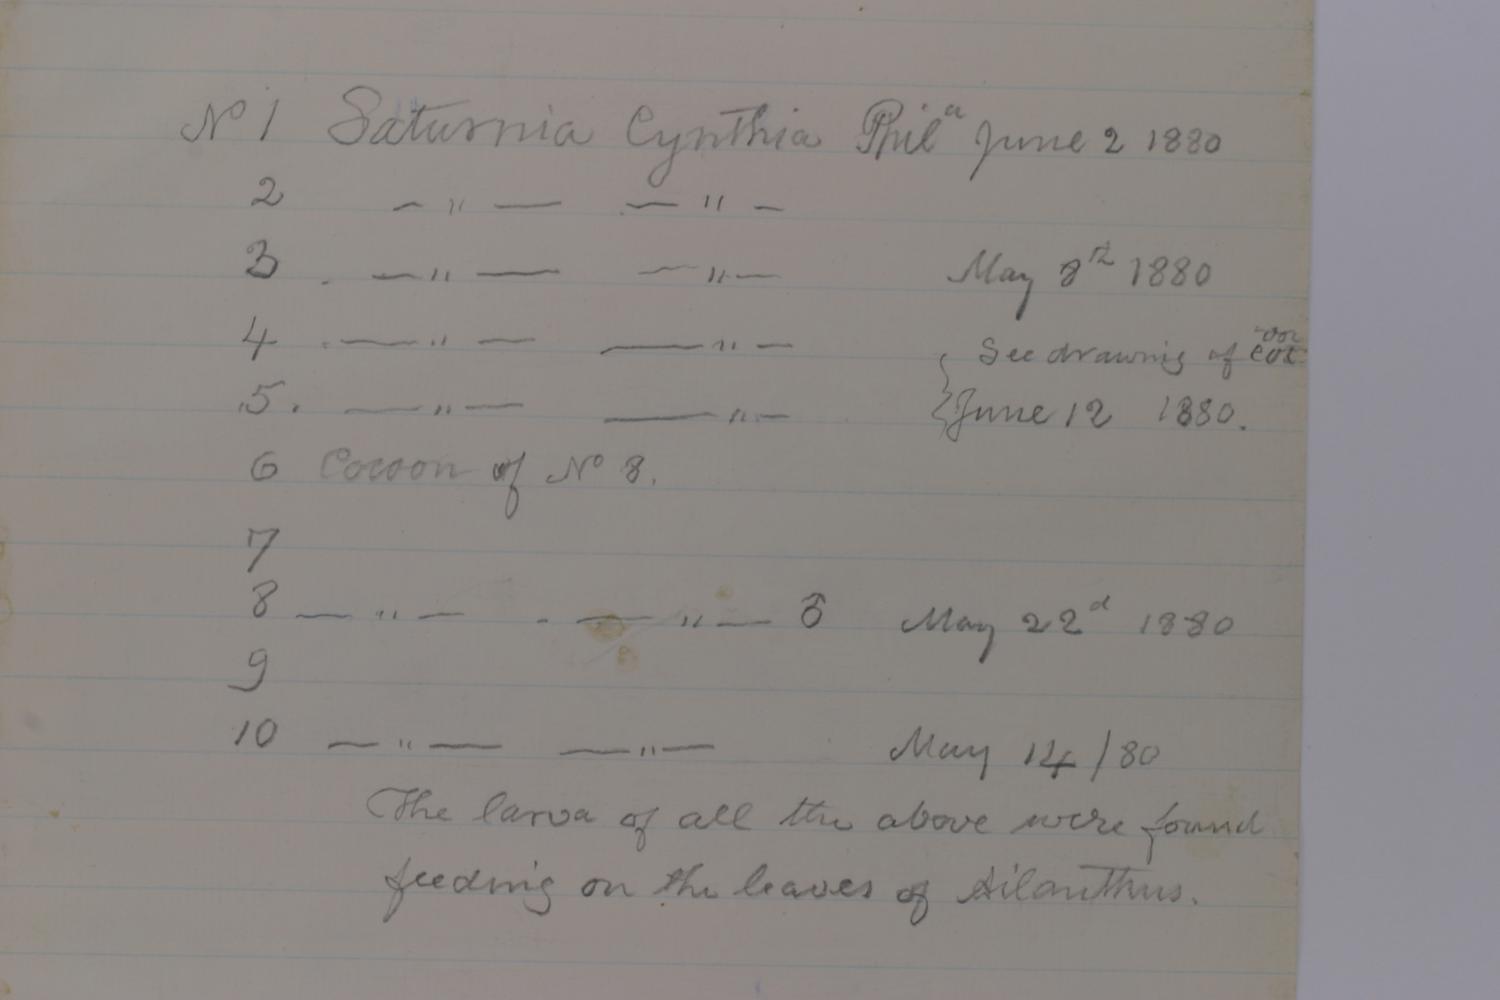 No 1 Saturnia Cynthia Phila June 2 1880
2 — " — — " —
3 . — " — — " — May 8th 1880
4 . — " — — " — See drawing of coc-
oon
5. — " — — " — June 12 1880.
6 Cocoon of No 8.
7
8 — " — - — " — ♂ May 22d 1880
9
10 — " — — " — May 14/80
The larva of all the above were found
feeding on the leaves of Ailanthus.